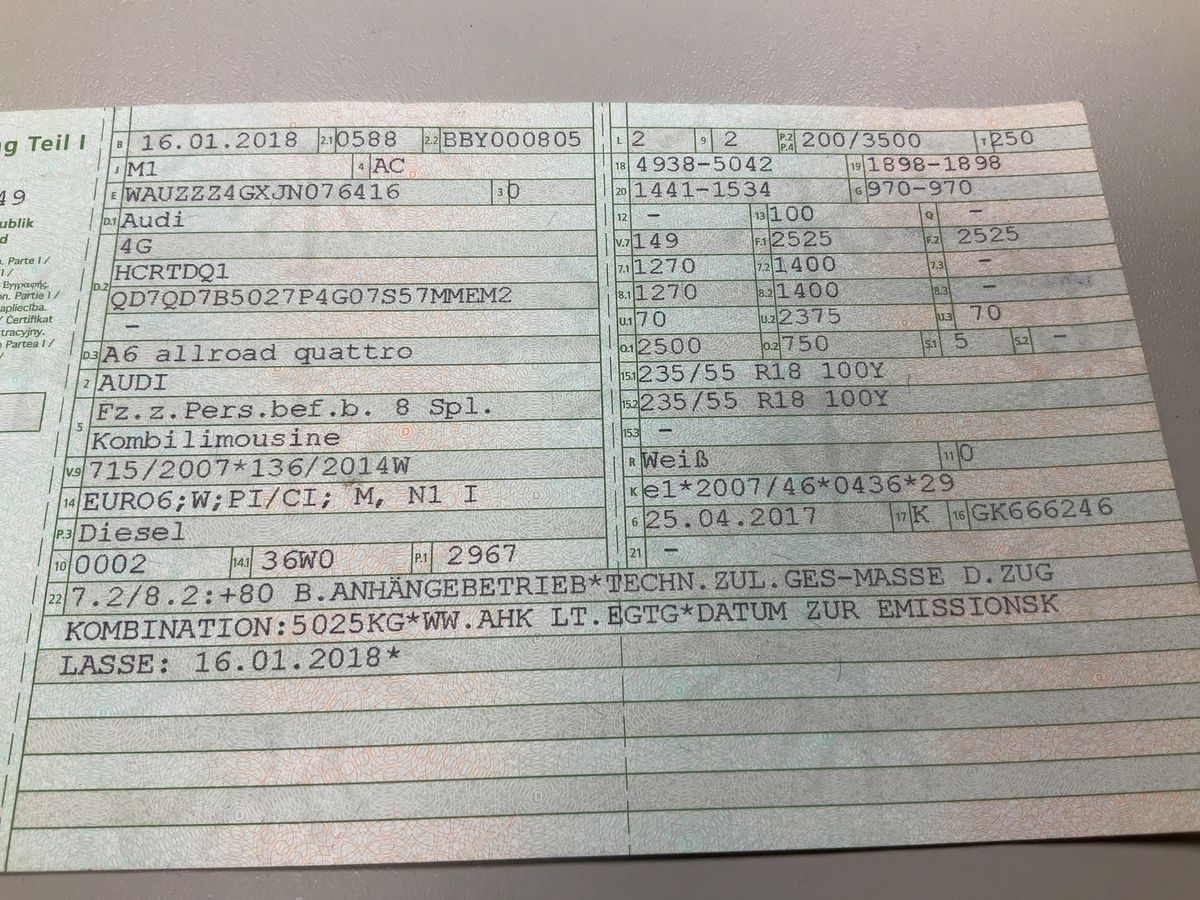 g Teil I
49
ublik
d
. Parte I /
I /
Εγγραφής.
on. Partie I /
apliecība.
/ Certifikat
tracyjny.
e Partea I /
/
B 16.01.2018 2.1 0588 2.2 BBY000805
J M1 4 AC
E WAUZZZ4GXJN076416 3 0
D.1 Audi
4G
D.2 HCRTDQ1
QD7QD7B5027P4G07S57MMEM2
–
D.3 A6 allroad quattro
2 AUDI
5 Fz.z.Pers.bef.b. 8 Spl.
Kombilimousine
V.9 715/2007*136/2014W
14 EURO6;W;PI/CI; M, N1 I
P.3 Diesel
10 0002 14.1 36W0 P.1 2967
L 2 9 2 P.2 P.4 200/3500 T 250
18 4938-5042 19 1898-1898
20 1441-1534 G 970-970
12 – 13 100 Q –
V.7 149 F.1 2525 F.2 2525
7.1 1270 7.2 1400 7.3 –
8.1 1270 8.2 1400 8.3 –
U.1 70 U.2 2375 U.3 70
O.1 2500 O.2 750 S.1 5 S.2 –
15.1 235/55 R18 100Y
15.2 235/55 R18 100Y
15.3 –
R Weiß 11 0
K e1*2007/46*0436*29
6 25.04.2017 17 K 16 GK666246
21 –
22 7.2/8.2:+80 B.ANHÄNGEBETRIEB*TECHN.ZUL.GES-MASSE D.ZUG
KOMBINATION:5025KG*WW.AHK LT.EGTG*DATUM ZUR EMISSIONSK
LASSE: 16.01.2018*